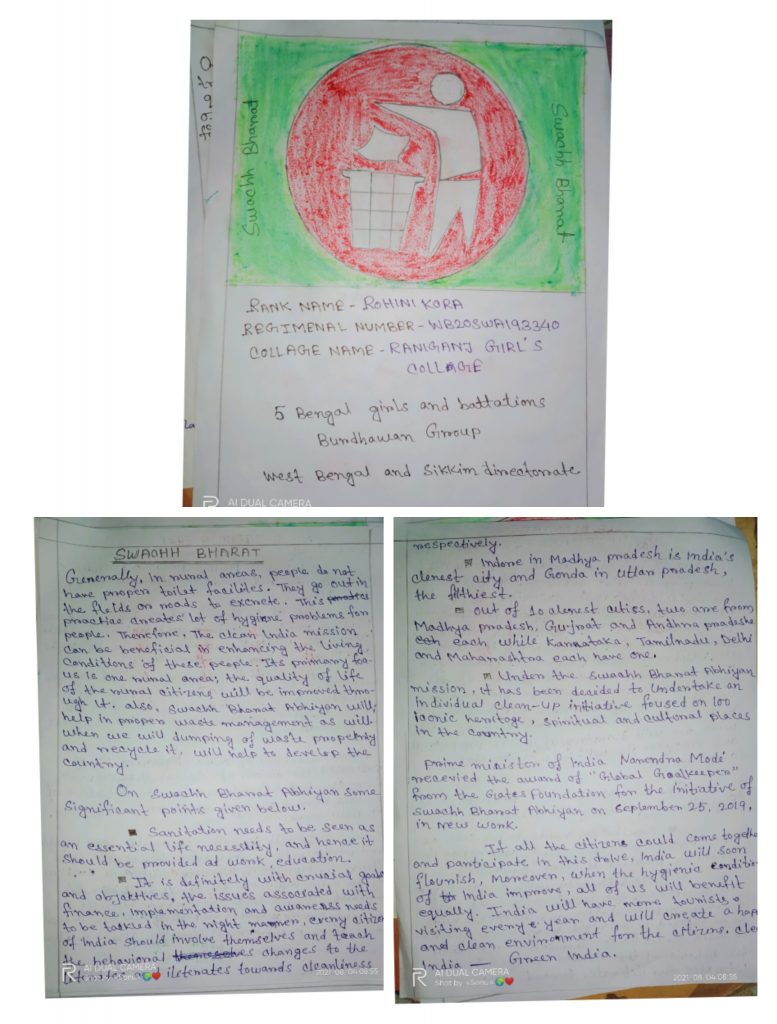 Swachh Bharat
Swachh Bharat
RANK NAME - ROHINI KORA
REGIMENAL NUMBER - WB20SWA193340
COLLAGE NAME - RANIGANJ GIRL'S
COLLAGE
5 Bengal girls and battations
Burdhawan Group
West Bengal and Sikkim directorate
AI DUAL CAMERA
SWACHH BHARAT
Generally, in rural areas, people do not
have proper toilet facilites. They go out in
the fields on roads to excrete. This
practice creates lot of hygiene problems for
people. Therefore, The clean India mission
can be beneficial in enhancing the living
Conditions of these people. Its primary foc-
us is one rural area; the quality of life
of the rural citizens will be improved thro-
ugh it. also, Swachh Bharat Abhiyan will
help in proper waste management as will
when we will dumping of waste propetrly
and recycle it, will help to develop the
country.
On Swachh Bharat Abhiyan some
Significant points given below.
Sanitation needs to be seen as
an essential life necessitity, and hence it
should be provided at work, education.
It is definitely with crucial goals
and objaktives, the issues associated with
finance, implementation and awareness needs
to be tasked in the right manner, every citizen
of India should involve themselves and teach
the behavioral changes to the
iletenates towards cleanliness
AI DUAL CAMERA
Shot by Sonu
2021.08.04 08:55
respectively.
Indore in Madhya pradesh is India's
clenest city and Gonda in uttar pradesh,
the filthiest.
out of 10 clenest cities, two are from
Madhya pradesh, Gujrat and Andhra pradeshe
each while Karnataka, Tamilnadu, Delhi
and Maharashtra each have one.
Under the swachh Bharat Abhiyan
mission, it has been decided to undertake an
individual clean-up initiative foused on 100
iconic heritage, spiritual and cultural places
in the country.
prime minister of India Narendra Modi
recevied the award of "Global Goalkeeper"
from the Gates foundation for the initiative of
Swachh Bharat Abhiyan on September 25, 2019,
in New work.
If all the citizens could come togethe
and participate in this drive, India will soon
flourish, Moreover, when the hygienic conditio
of India improve, all of us will benefit
equally. India will have more tourists
visiting every year and will create a happ
and clean environment for the citizens. clea
India — Green India.
AI DUAL CAMERA
Shot by Sonu
2021.08.04 08:56